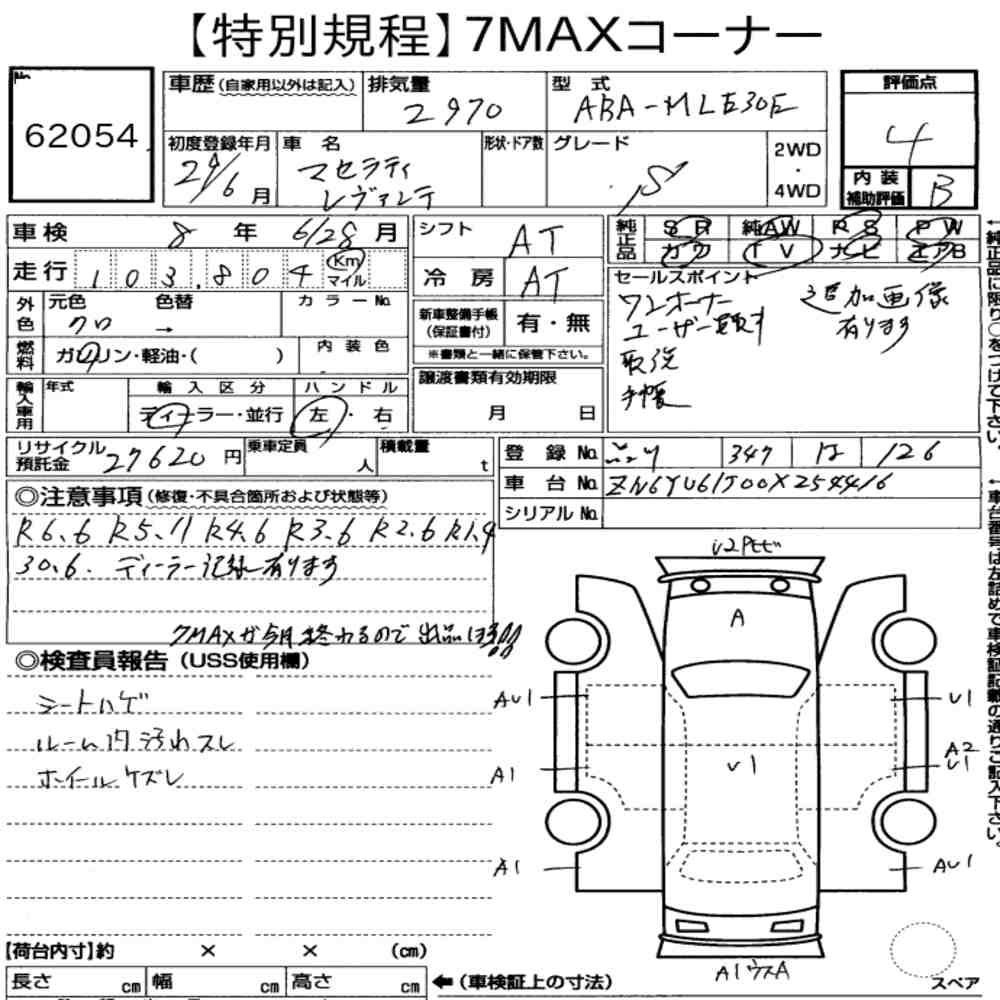 【特別規程】7MAXコーナー
No.
62054
車歴(自家用以外は記入)
排気量
2970
型式
ABA-MLE30E
評価点
4
初度登録年月
29/6月
車名
マセラティ
レヴァンテ
形状・ドア数
グレード
S
2WD
・
4WD
内装
補助評価
B
車検 8年 6/28月
走行 103,804 Km
マイル
外色
元色 クロ
色替 →
カラーNo.
燃料
ガソリン・軽油・( )
内装色
輸入車用
年式
輸入区分
ディーラー・並行
ハンドル
左・右
シフト AT
冷房 AT
新車整備手帳
(保証書付)
有・無
※書類と一緒に保管下さい。
譲渡書類有効期限
月 日
純正品
SR 純AW PS PW
カワ TV ナビ エアB
セールスポイント
ワンオーナー
ユーザー買取す
取説
手帳
追加画像
有ります
←純正品に限り○をつけて下さい。
リサイクル
預託金
27620円
乗車定員
人
積載量
t
登録No. 347 は 126
車台No. ZN6YU61J00X254416
シリアルNo.
←車台番号は左詰めで車検証記載の通りご記入下さい。
◎注意事項(修復・不具合箇所および状態等)
R6.6 R5.11 R4.6 R3.6 R2.6 R1.9
30.6. ディーラー記録有ります
7MAXが今月終わるので出品
◎検査員報告(USS使用欄)
シートハゲ
ルーム内汚れスレ
ホイールケズレ
リペトビ
A
AU1
U1
A1
U1
A2
U1
A1
AU1
A1リクスA
スペア
【荷台内寸】約 × × (cm)
長さ cm 幅 cm 高さ cm
←(車検証上の寸法)